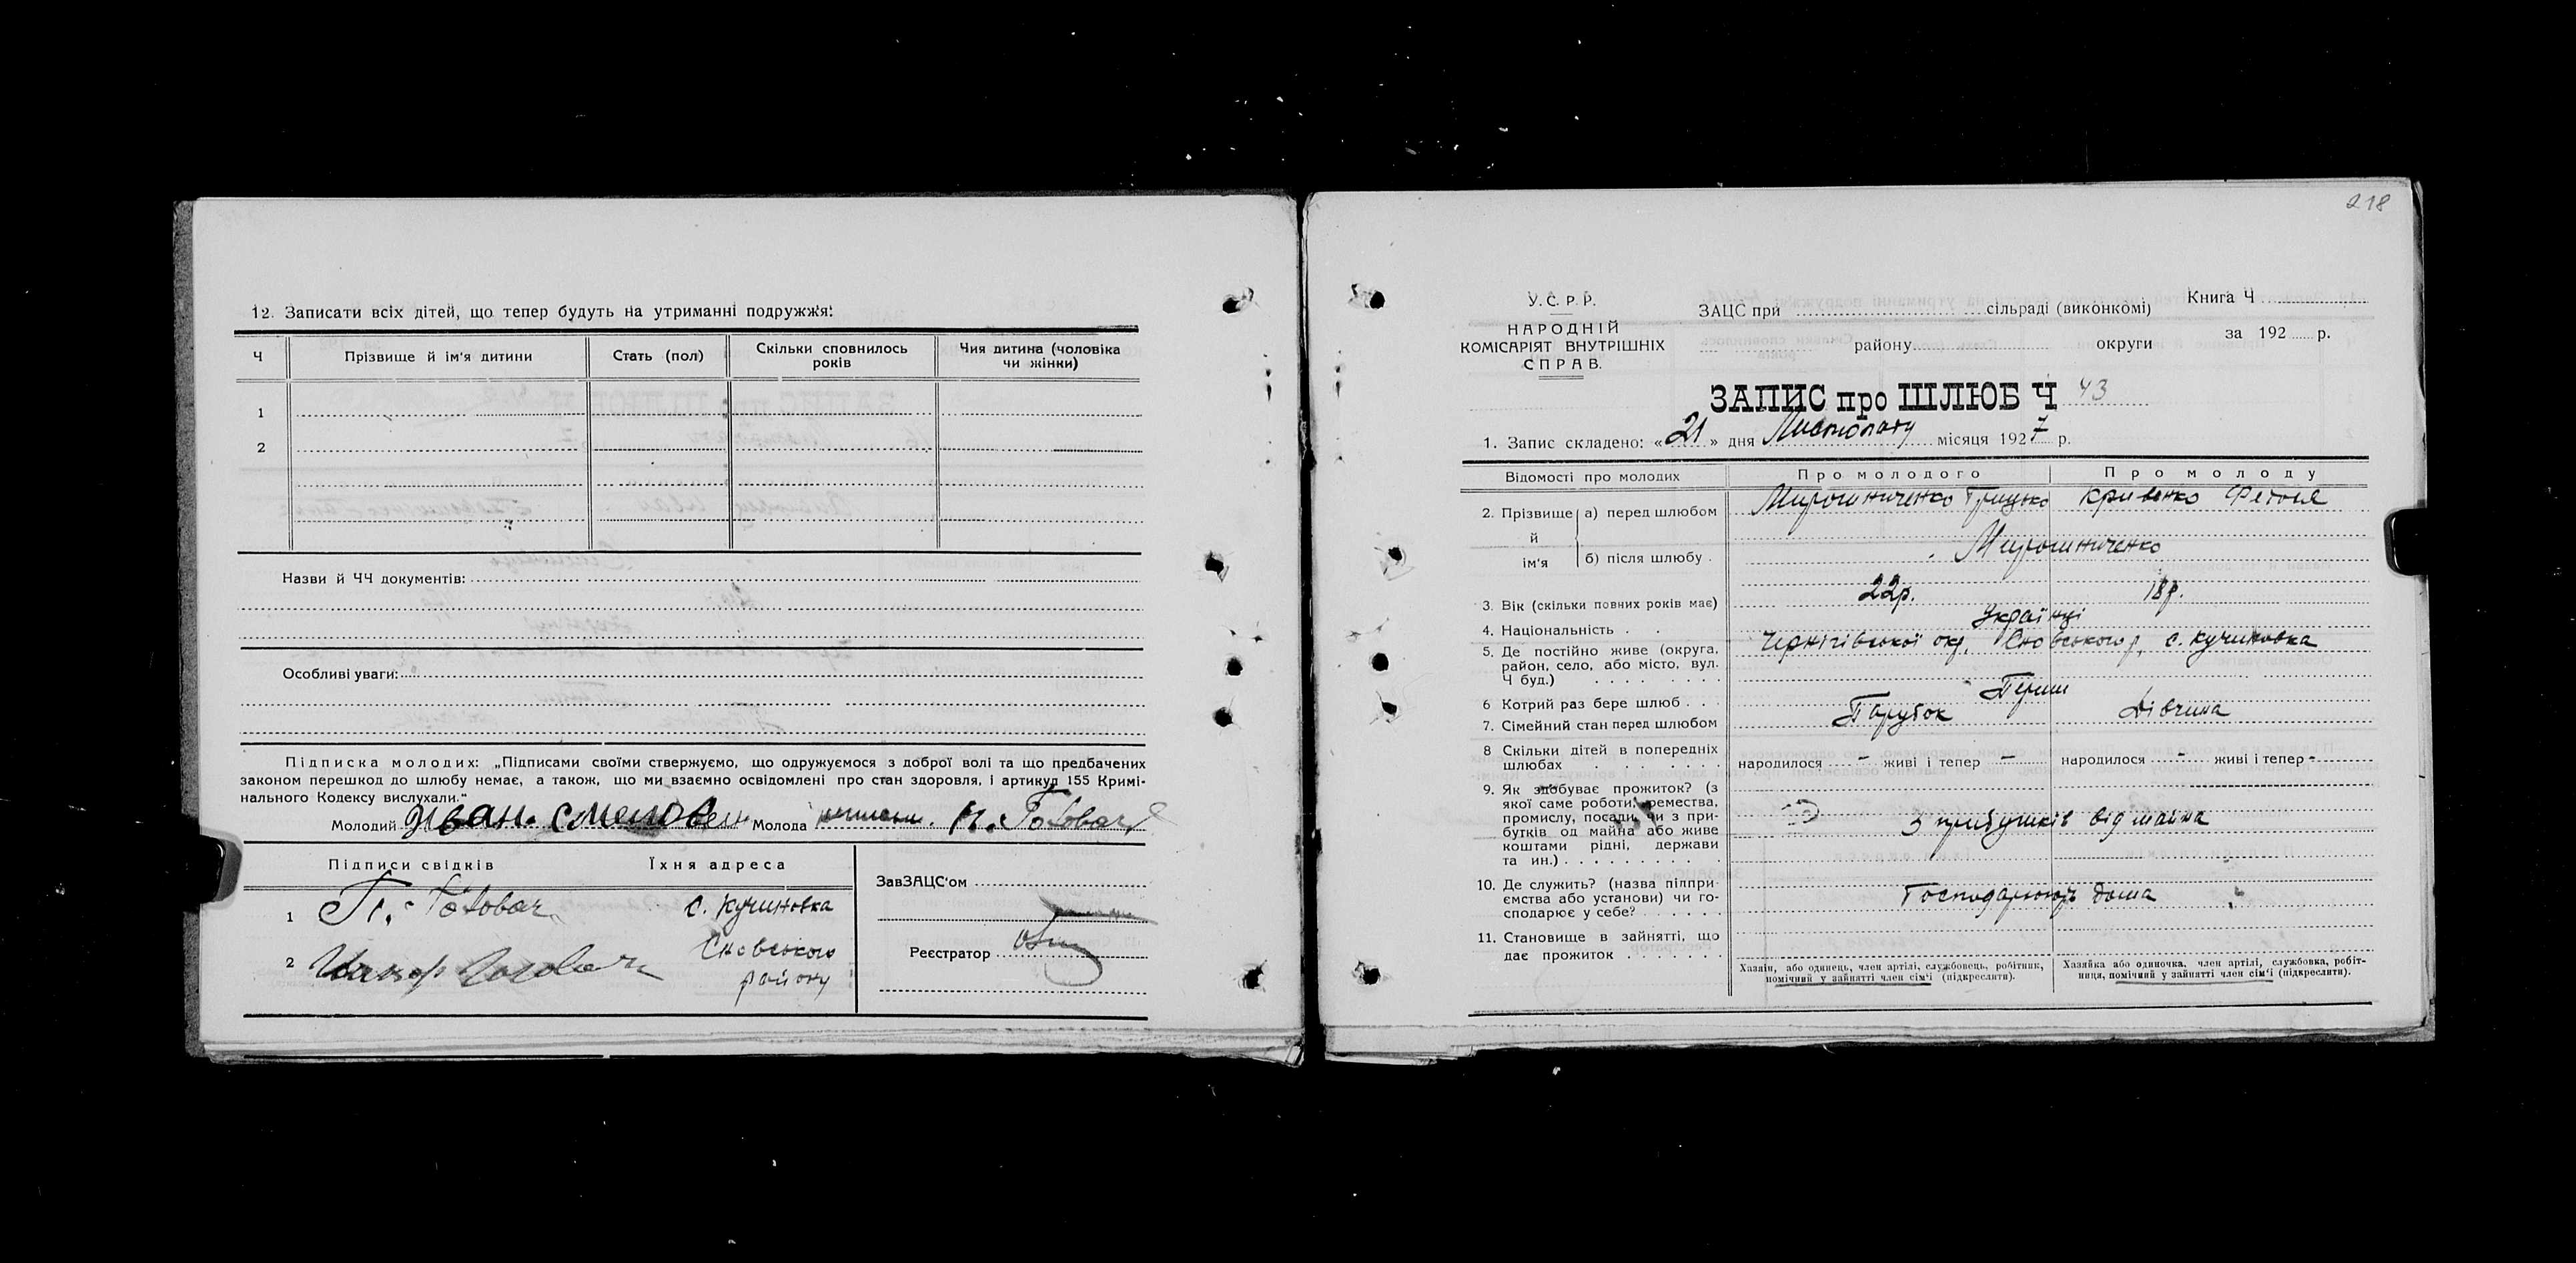 12. Записати всіх дітей, що тепер будуть на утриманні подружжя:
Ч Прізвище й ім'я дитини Стать (пол) Скільки сповнилось років Чия дитина (чоловіка чи жінки)
1
2
Назви й ЧЧ документів:
Особливі уваги:
Підписка молодих: „Підписами своїми стверджуємо, що одружуємося з доброї волі та що предбачених
законом перешкод до шлюбу немає, а також, що ми взаємно освідомлені про стан здоровля, і артикул 155 Кримі-
нального Кодексу вислухали."
Молодий Иван Молода
Підписи свідків Їхня адреса
1 с. Кучиновка
2 Сновського
району
ЗавЗАЦС'ом
Реєстратор
218
У.С.Р.Р.
НАРОДНІЙ
КОМІСАРІЯТ ВНУТРІШНІХ
СПРАВ.
ЗАЦС при сільраді (виконкомі)
району округи
Книга Ч
за 192 р.
ЗАПИС про ШЛЮБ Ч 43
1. Запис складено: « 21 » дня Листопаду місяця 1927 р.
Відомості про молодих Про молодого Про молоду
2. Прізвище й ім'я а) перед шлюбом Мирошниченко Грицько Кривенко
б) після шлюбу Мирошниченко
3. Вік (скільки повних років має) 22р. 18р.
4. Національність Українці
5. Де постійно живе (округа, район, село, або місто, вул. Ч буд.) Чернігівської окр, Сновського р, с. Кучиновка
6 Котрий раз бере шлюб Перш
7. Сімейний стан перед шлюбом Парубок Дівчина
8 Скільки дітей в попередніх шлюбах народилося - живі і тепер - народилося - живі і тепер -
9. Як здобуває прожиток? (з якої саме роботи, ремества, промислу, посади, чи з прибутків од майна або живе коштами рідні, держави та ин.) З прибутків від майна
10. Де служить? (назва підпри-ємства або установи) чи го-сподарює у себе? Господарюють дома
11. Становище в зайнятті, що дає прожиток
Хазяін, або одинець, член артілі, службовець, робітник, помічний у зайнятті член сім'ї (підкреслити).
Хазяйка або одиночка, член артілі, службовка, робіт-ниця, помічний у зайнятті член сім'ї (підкреслити).